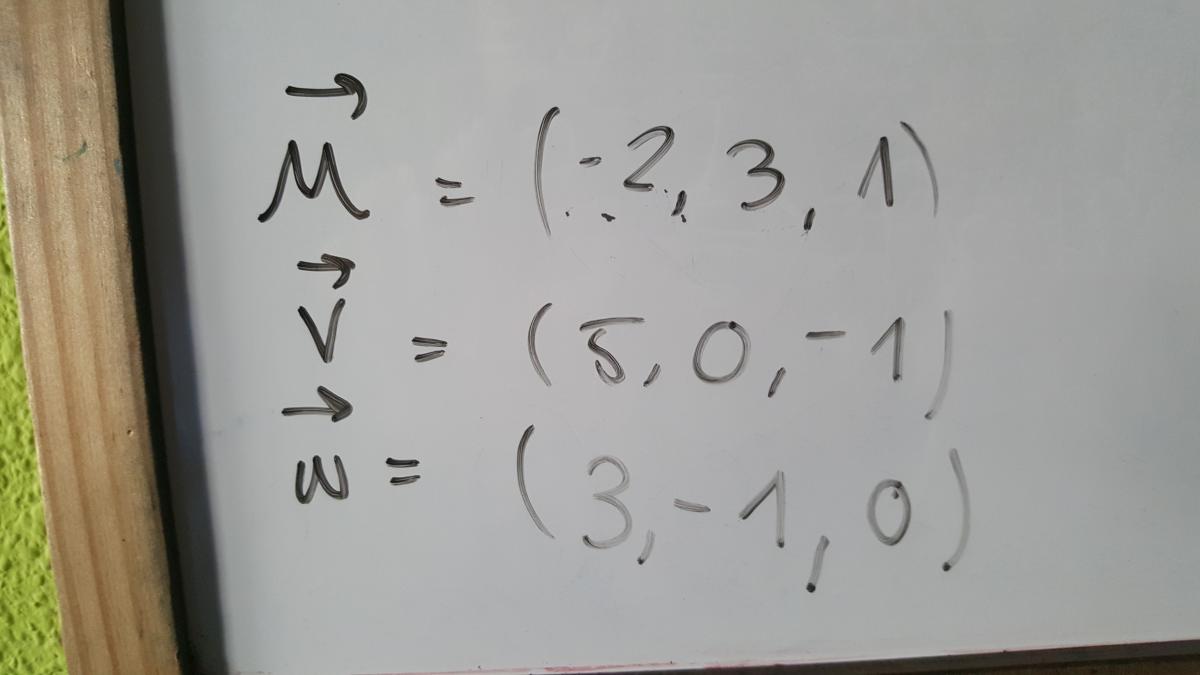 μ⃗ = (-2, 3, 1)
v⃗ = (5, 0, -1)
w⃗ = (3, -1, 0)